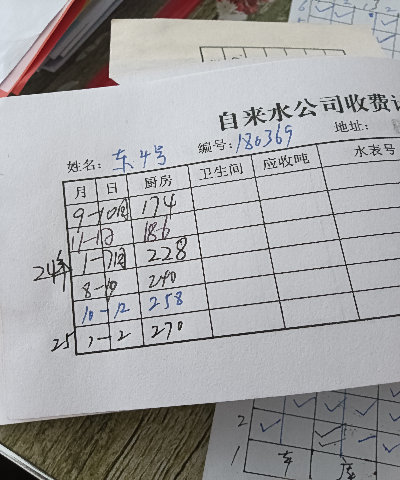 自来水公司收费
姓名: 东4号 编号: 180369 地址:
月 日 厨房 卫生间 应收吨 水表号
9-10月 174
11-12 186
24年 1-7月 228
8-10 240
10-12 258
25 1-2 270
2
1